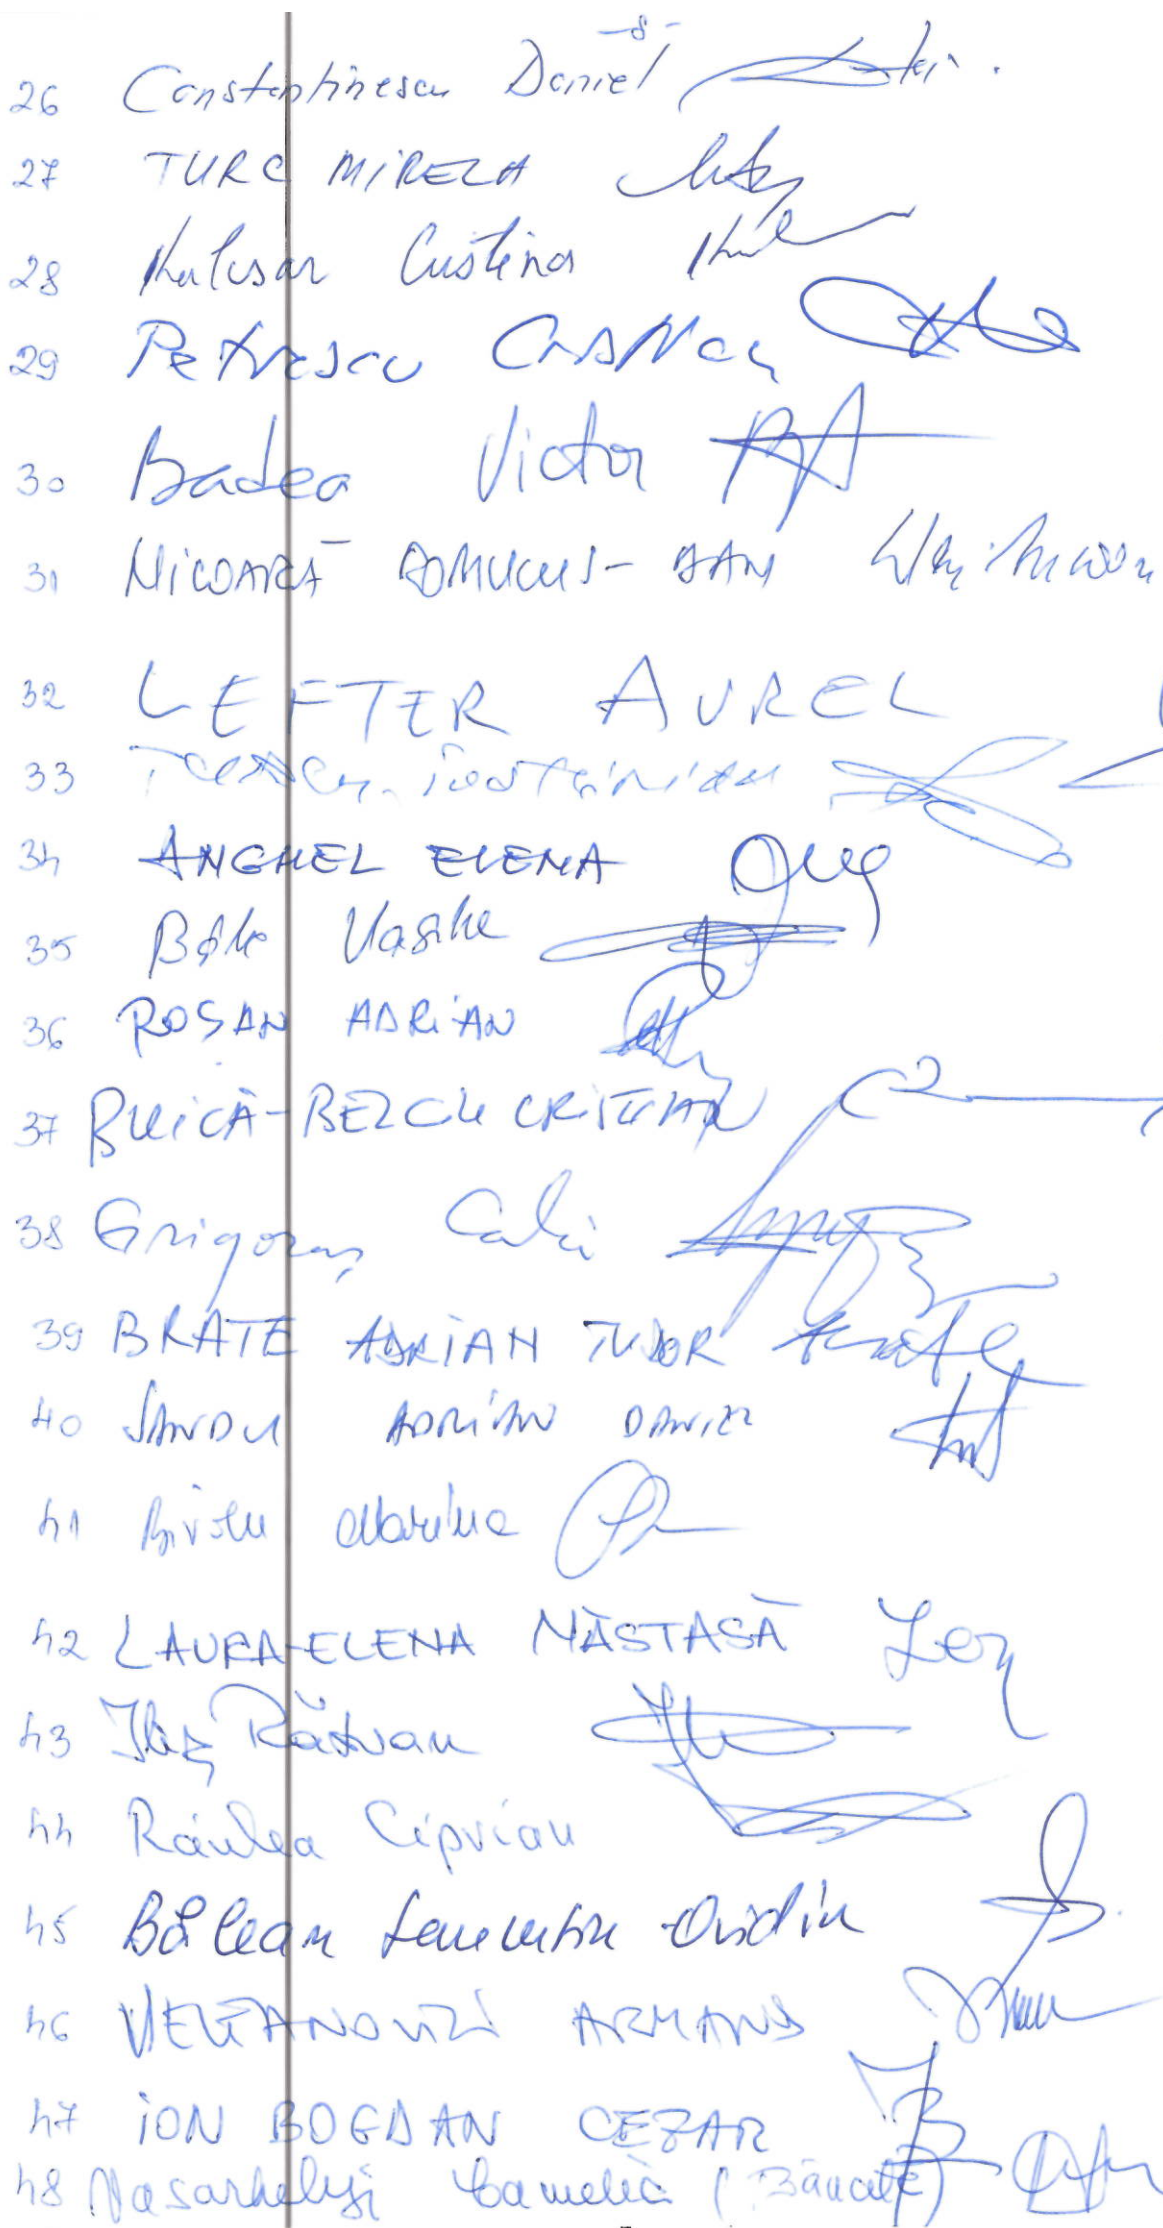 -8-
26 Constantinescu Daniel
27 TURC MIRELA
28 Cristina
29 Petrescu Cristian
30 Badea Victor
31 NICOARĂ ROMULUS-DAN
32 LEFTER AUREL
33
34 ANGHEL ELENA
35 Vasile
36 ROŞAN ADRIAN
37 BUICĂ-BELCIU CRISTIAN
38 Grigoraş
39 BRATE ADRIAN TUDOR
40 SANDU ADRIAN DANIEL
41 Marina
42 LAURA-ELENA NĂSTASĂ
43 Ilieş Răzvan
44 Răulea Ciprian
45 Bălean Ovidiu
46 ARMAND
47 ION BOGDAN CEZAR
48 Vasarhelyi Camelia